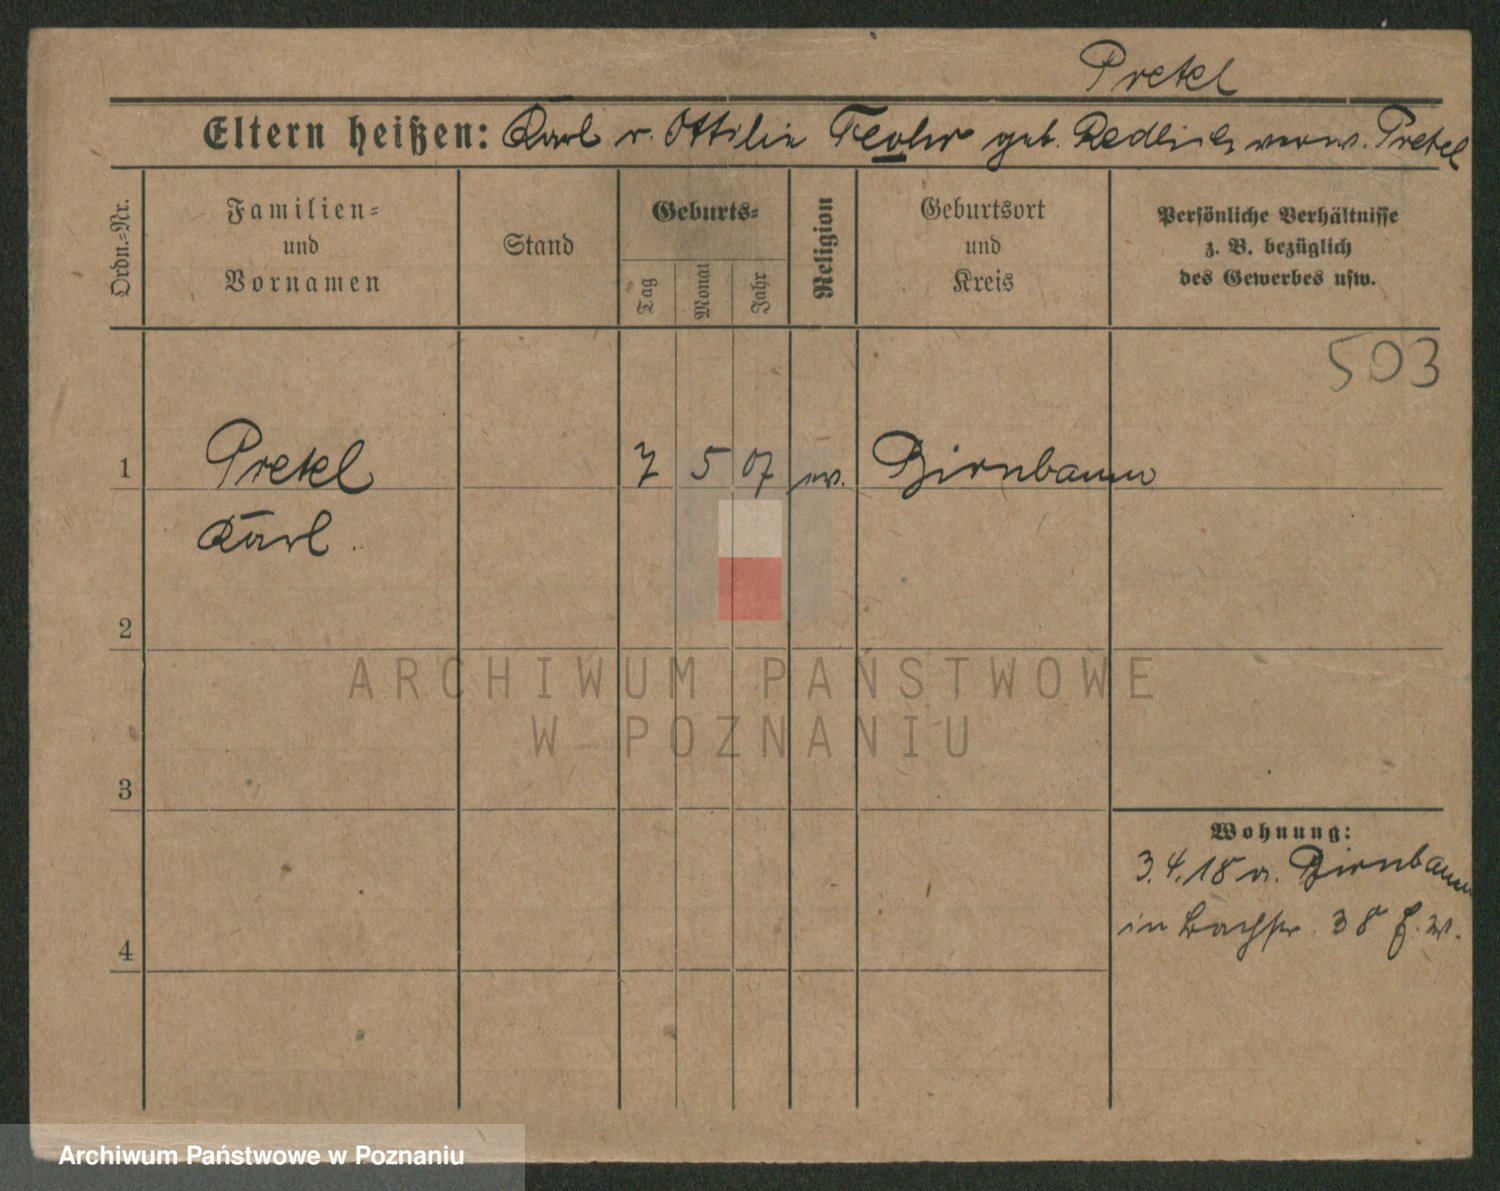 Pretel
Eltern heißen: Karl u. Ottilie geb. Redlich verw. Pretel
Ordn.-Nr.
Familien-
und
Vornamen
Stand
Geburts-
Tag
Monat
Jahr
Religion
Geburtsort
und
Kreis
Persönliche Verhältnisse
z. B. bezüglich
des Gewerbes usw.
503
1 Pretel 7 5 07 ev. Birnbaum
Karl
2
3
4
Wohnung:
3.4.18 v. Birnbaum
in Bachstr. 38
ARCHIWUM PAŃSTWOWE
W POZNANIU
Archiwum Państwowe w Poznaniu